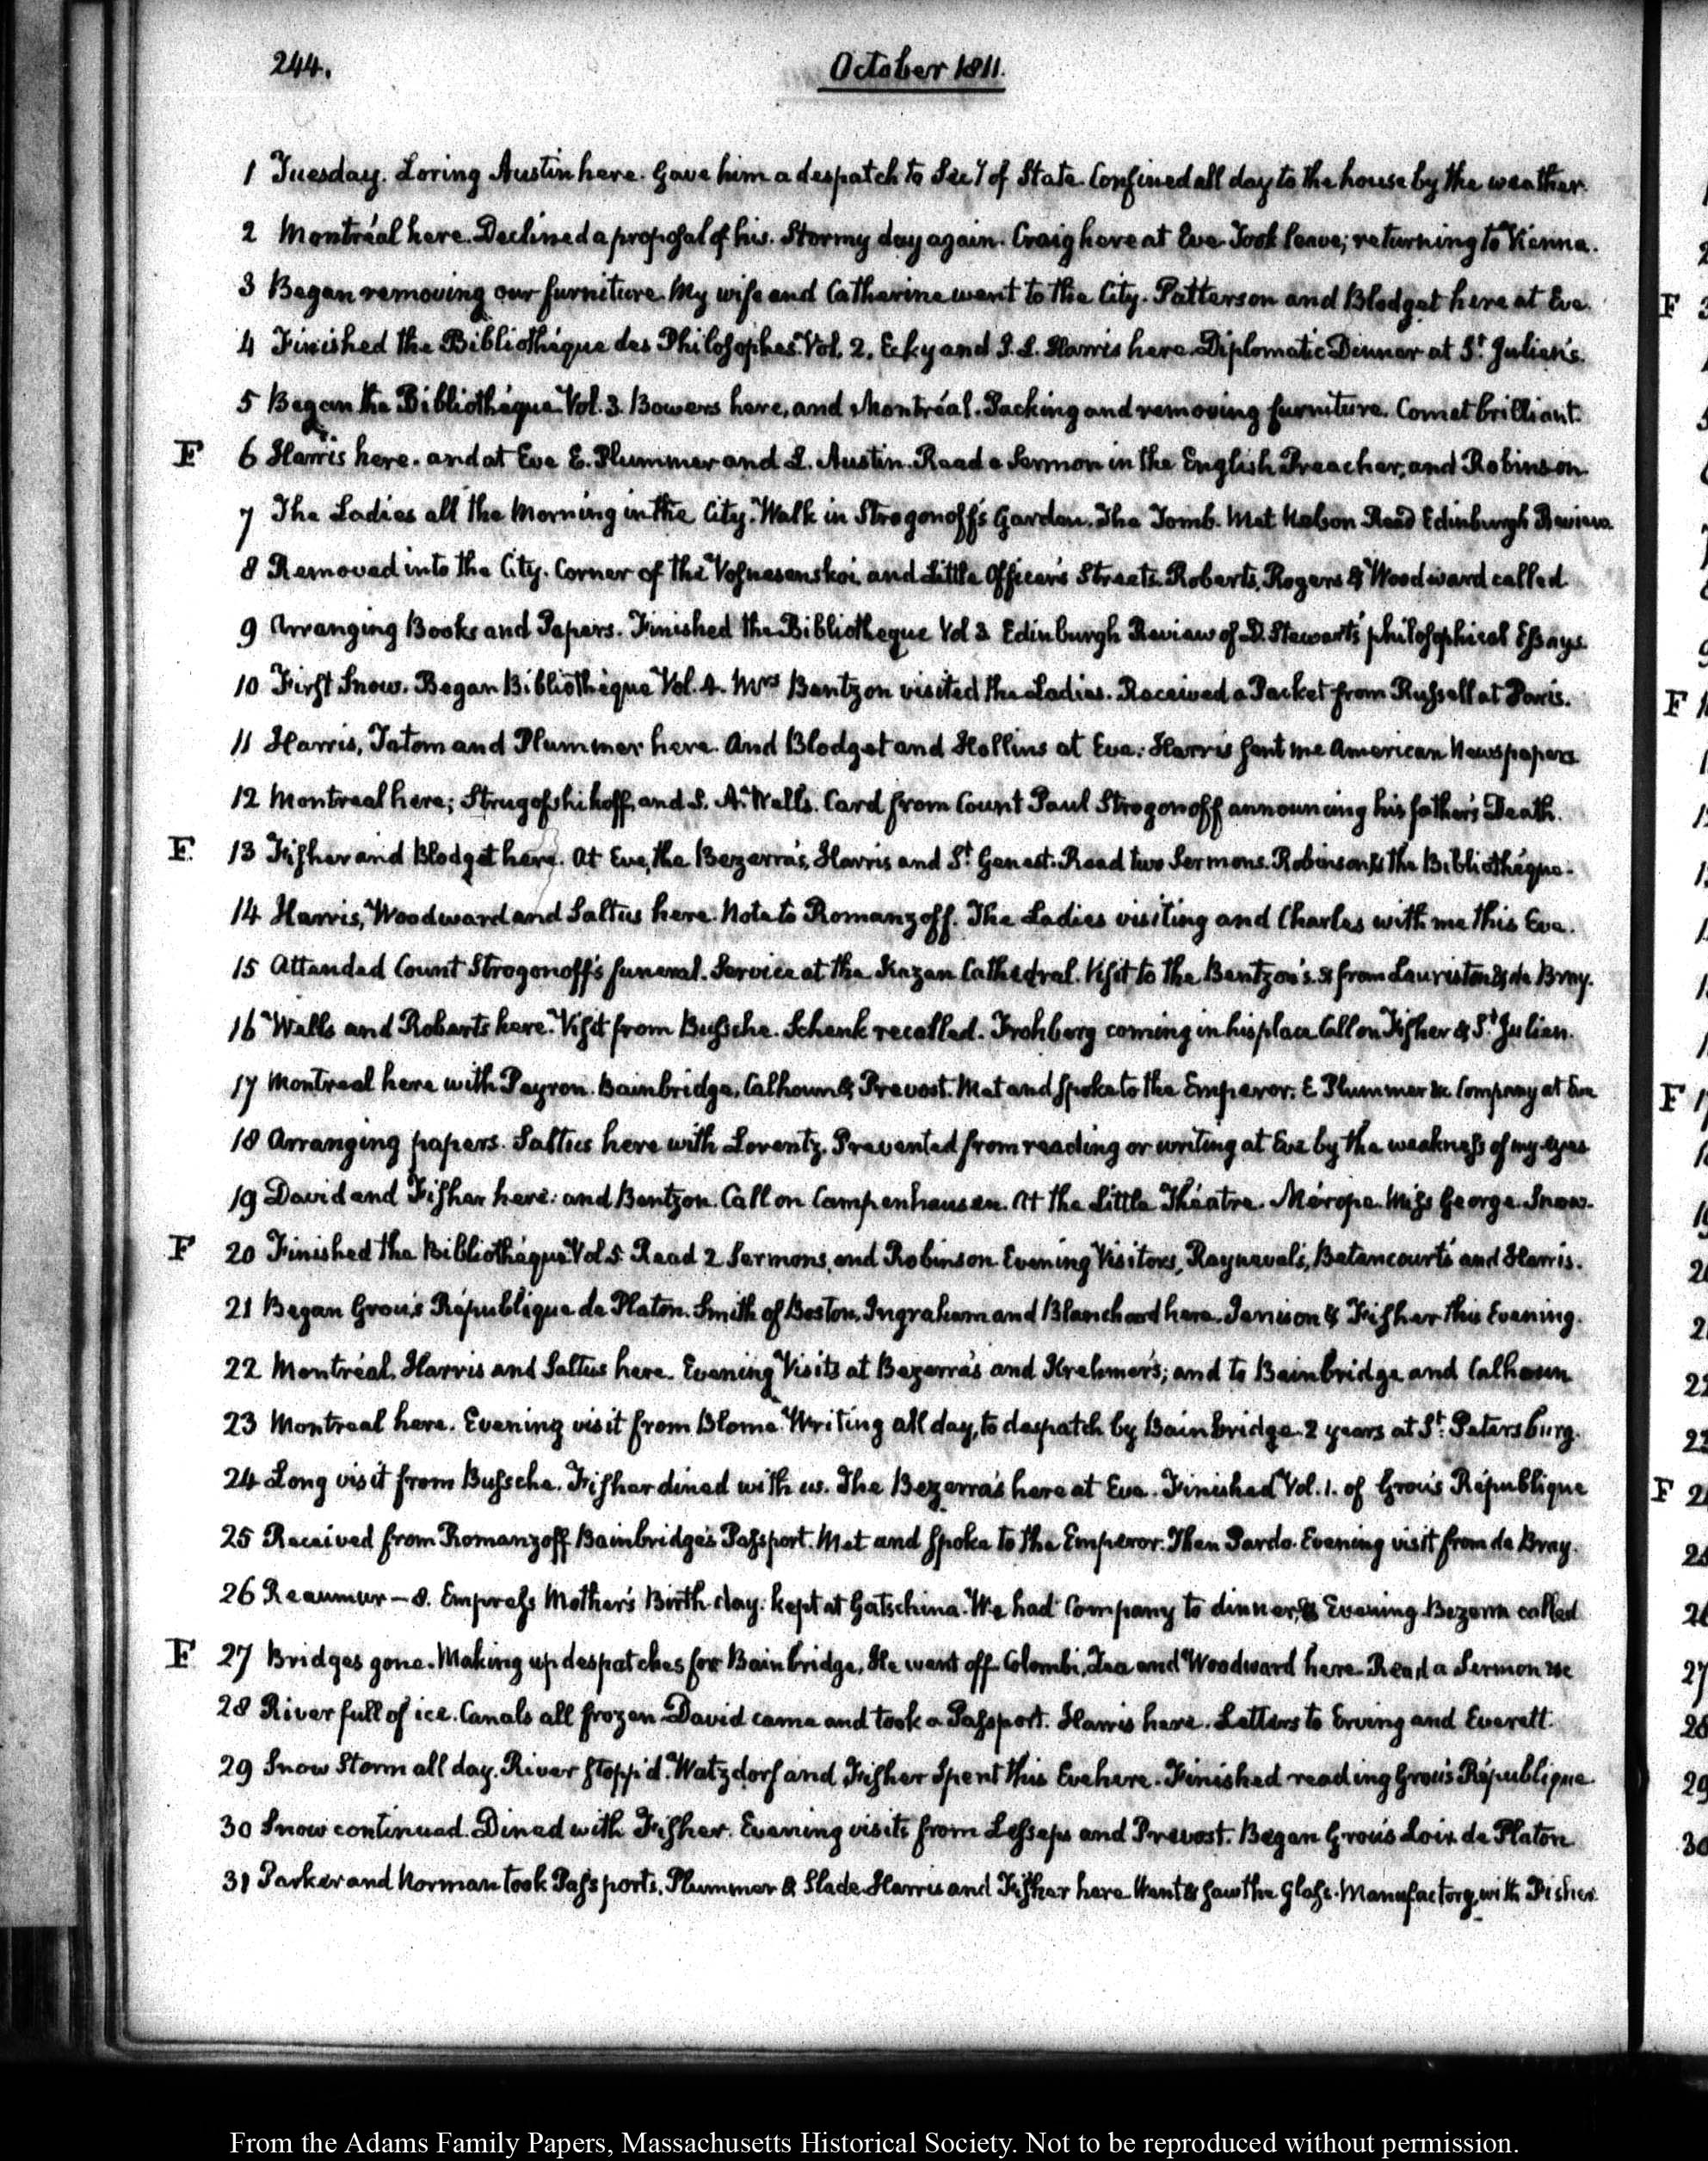 244.
October 1811.
1 Tuesday. Loring Austin here. Gave him a despatch to Secy of State. Confined all day to the house by the weather.
2 Montréal here. Declined a proposal of his. Stormy day again. Craig here at Eve. Took leave; returning to Vienna.
3 Began removing our furniture. My wife and Catherine went to the City. Patterson and Blodget here at Eve.
4 Finished the Bibliothéque des Philosophes. Vol. 2. Ecky and J. L. Harris here. Diplomatic Dinner at St. Julien's.
5 Began the Bibliothéque Vol. 3. Bowers here, and Montréal. Packing and removing furniture. Comet brilliant.
F 6 Harris here. and at Eve E. Plummer and L. Austin. Read a Sermon in the English Preacher, and Robinson
7 The Ladies all the Morning in the City. Walk in Strogonoff's Garden. The Tomb. Met Nelson Read Edinburgh Review
8 Removed into the City. Corner of the Vosnesenskoi and Little Officer's Streets. Roberts, Rogers & Woodward called
9 Arranging Books and Papers. Finished the Bibliotheque Vol 3. Edinburgh Review of D. Stewart's philosophical Essays.
10 First Snow. Began Bibliothèque Vol. 4. Mrs Bentzon visited the Ladies. Received a Packet from Russell at Paris.
11 Harris, Tatom and Plummer here. And Blodget and Hollins at Eve. Harris sent me American Newspapers
12 Montreal here; Strugofshikoff, and S. A. Wells. Card from Count Paul Strogonoff announcing his father's Death.
F. 13 Fisher and Blodget here. At Eve, the Bezerra's, Harris and St. Genest. Read two Sermons. Robinson & the Bibliothéque.
14 Harris, Woodward and Saltus here. Note to Romanzoff. The Ladies visiting and Charles with me this Eve.
15 Attended Count Strogonoff's funeral. Service at the Kazan Cathedral. Visit to the Bentzon's. & from Lauriston & de Bray.
16 Wells and Roberts here. Visit from Bussche. Schenk recalled. Frohberg coming in his place. Call on Fisher & St. Julien.
17 Montreal here with Peyron. Bainbridge, Calhoun & Prevost. Met and spoke to the Emperor. E. Plummer &c. Company at Eve
18 Arranging papers. Saltus here with Lorentz. Prevented from reading or writing at Eve by the weakness of my eyes
19 David and Fisher here: and Bentzon. Call on Campenhausen. At the Little Théatre. Mérope. Miss George. Snow.
F 20 Finished the Bibliothéque Vol 5. Read 2 Sermons, and Robinson. Evening Visitors, Raynevals, Betancourts and Harris.
21 Began Grou's République de Platon. Smith of Boston, Ingraham and Blanchard here. Jenison & Fisher this Evening.
22 Montréal, Harris and Saltus here. Evening Visits at Bezerra's and Krehmer's; and to Bainbridge and Calhoun
23 Montreal here. Evening visit from Blome. Writing all day, to despatch by Bainbridge. 2 years at St. Petersburg.
24 Long visit from Bussche. Fisher dined with us. The Bezerra's here at Eve. Finished Vol. 1. of Grou's République
25 Received from Romanzoff Bainbridge's Passport. Met and spoke to the Emperor. Then Pardo. Evening visit from de Bray.
26 Reaumur - 8. Empress Mother's Birth-day. kept at Gatschina. We had Company to dinner, & Evening. Bezerra called
F 27 Bridges gone. Making up despatches for Bainbridge. He went off. Colombi, Zea and Woodward here. Read a Sermon &c
28 River full of ice. Canals all frozen. David came and took a Passport. Harris here. Letters to Erving and Everett.
29 Snow Storm all day. River stopp'd. Watzdorf and Fisher spent this Eve here. Finished reading Grou's République.
30 Snow continued. Dined with Fisher. Evening visits from Lesseps and Prevost. Began Grou's Loix de Platon
31 Parker and Norman took Passports. Plummer & Slade Harris and Fisher here. Went & saw the Glass-Manufactory, with Fisher.
From the Adams Family Papers, Massachusetts Historical Society. Not to be reproduced without permission.